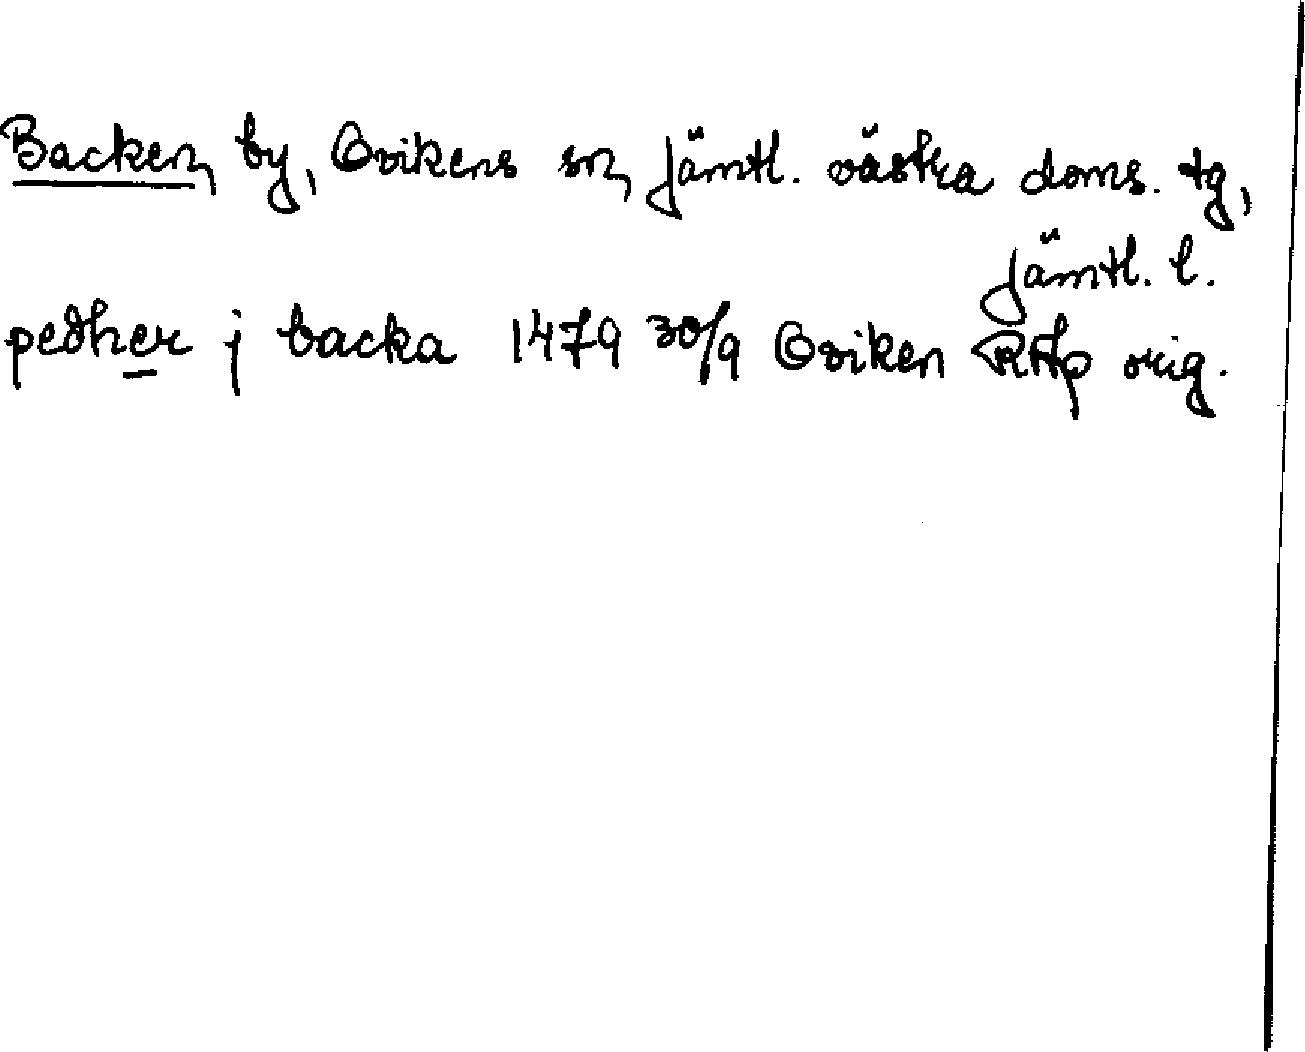 Backen, by, Ovikens sn, Jämtl. västra doms. tg,
Jämtl. l.
pedher j backa 1479 30/9 Oviken RAp orig.